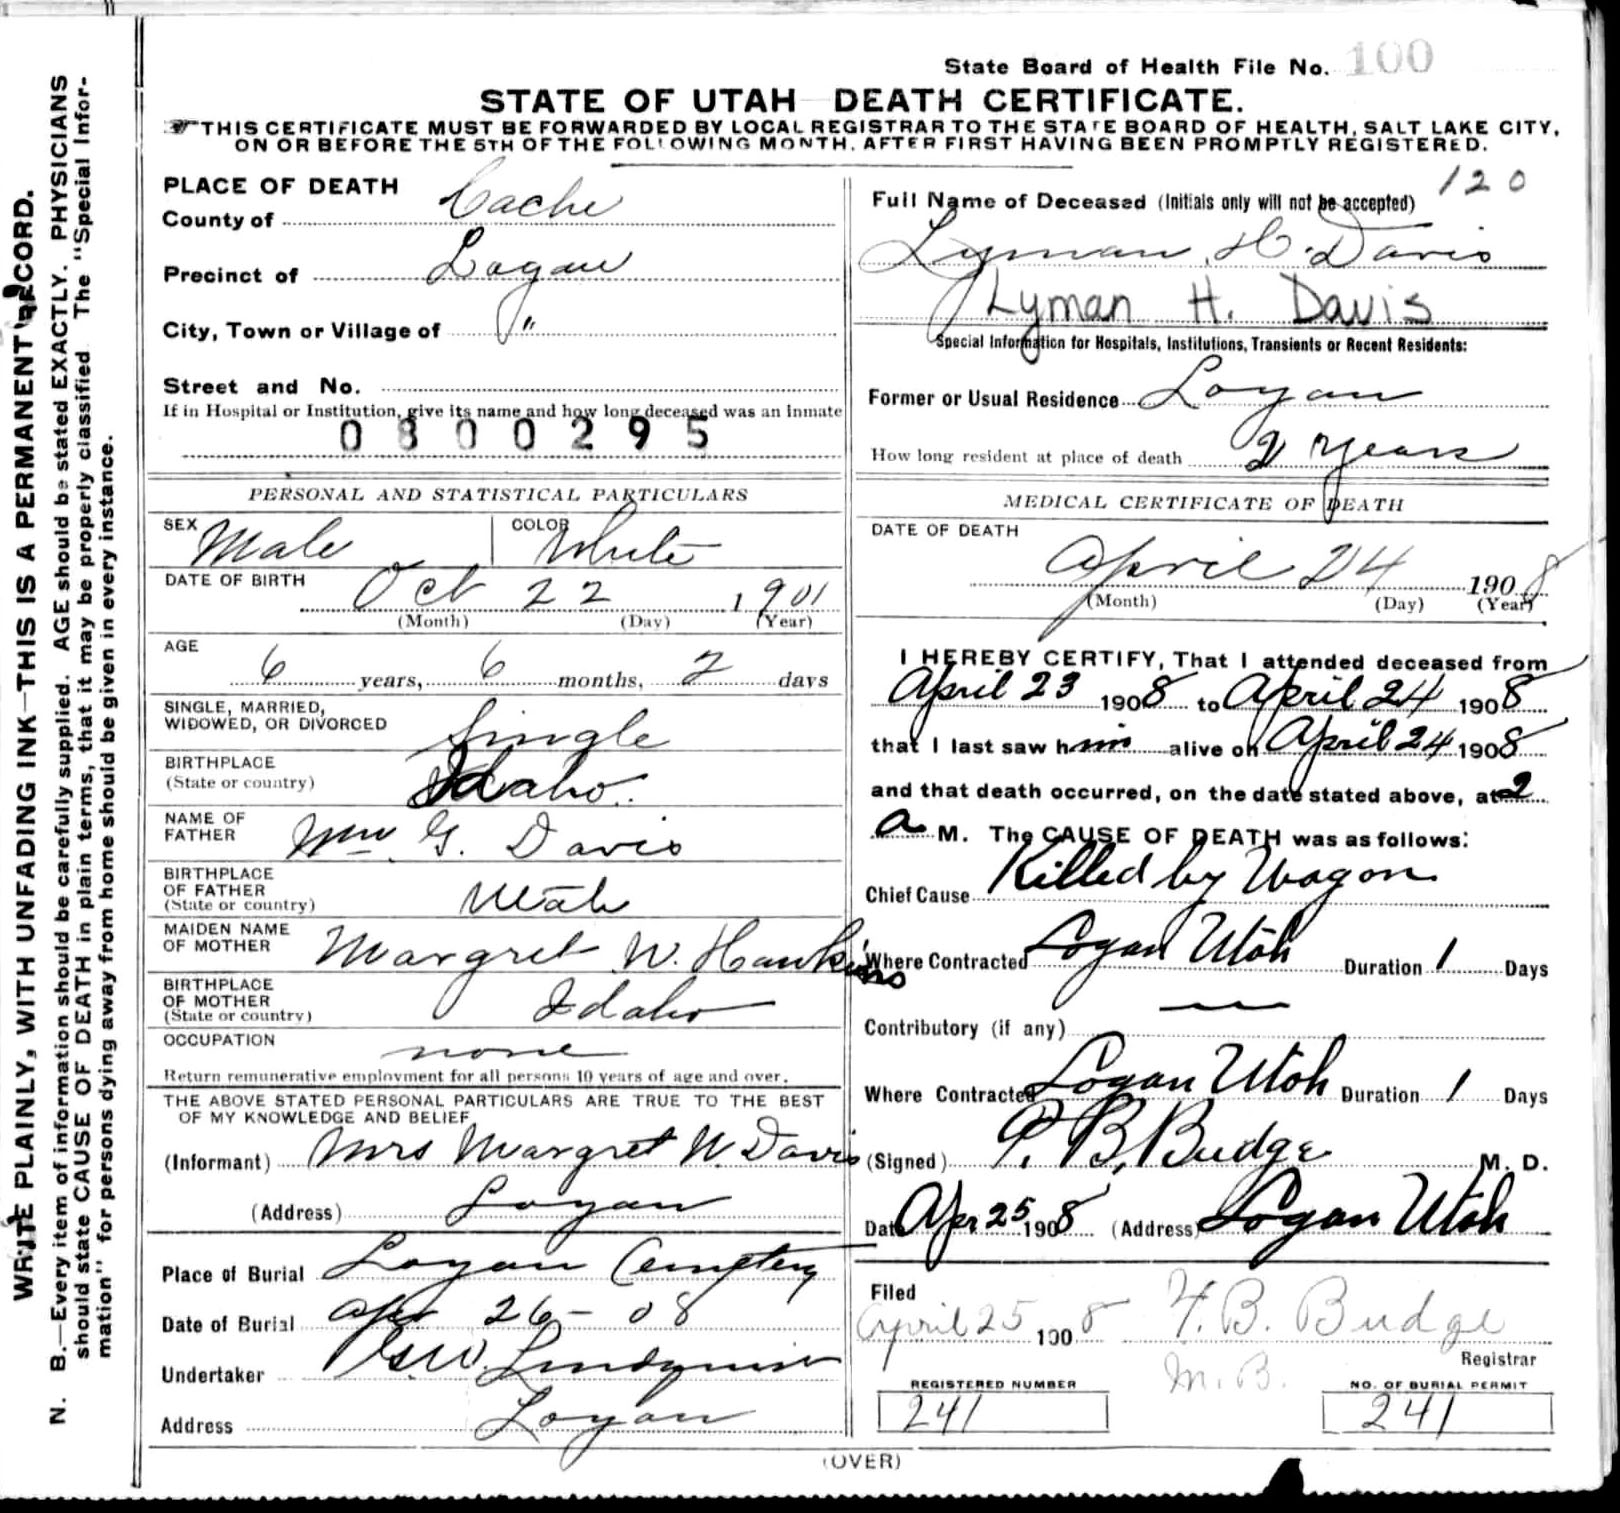 WRITE PLAINLY, WITH UNFADING INK—THIS IS A PERMANENT RECORD.
N. B.—Every item of information should be carefully supplied. AGE should be stated EXACTLY. PHYSICIANS
should state CAUSE OF DEATH in plain terms, that it may be properly classified. The "Special Infor-
mation" for persons dying away from home should be given in every instance.
State Board of Health File No. 100
STATE OF UTAH—DEATH CERTIFICATE.
THIS CERTIFICATE MUST BE FORWARDED BY LOCAL REGISTRAR TO THE STATE BOARD OF HEALTH, SALT LAKE CITY,
ON OR BEFORE THE 5TH OF THE FOLLOWING MONTH, AFTER FIRST HAVING BEEN PROMPTLY REGISTERED.
PLACE OF DEATH
County of Cache
Precinct of Logan
City, Town or Village of "
Street and No.
If in Hospital or Institution, give its name and how long deceased was an Inmate
0800295
PERSONAL AND STATISTICAL PARTICULARS
SEX Male COLOR White
DATE OF BIRTH Oct 22 1901
(Month) (Day) (Year)
AGE
6 years, 6 months, 2 days
SINGLE, MARRIED,
WIDOWED, OR DIVORCED Single
BIRTHPLACE
(State or country) Idaho.
NAME OF
FATHER Wm G. Davis
BIRTHPLACE
OF FATHER
(State or country) Utah
MAIDEN NAME
OF MOTHER Margret W. Hawkins
BIRTHPLACE
OF MOTHER
(State or country) Idaho
OCCUPATION none
Return remunerative employment for all persons 10 years of age and over.
THE ABOVE STATED PERSONAL PARTICULARS ARE TRUE TO THE BEST
OF MY KNOWLEDGE AND BELIEF
(Informant) Mrs Margret W. Davis
(Address) Logan
Place of Burial Logan Cemetery
Date of Burial Apr 26-08
Undertaker Lindquist
Address Logan
120
Full Name of Deceased (Initials only will not be accepted)
Lyman H. Davis
Lyman H. Davis
Special Information for Hospitals, Institutions, Transients or Recent Residents:
Former or Usual Residence Logan
How long resident at place of death 2 years
MEDICAL CERTIFICATE OF DEATH
DATE OF DEATH
April 24 1908
(Month) (Day) (Year)
I HEREBY CERTIFY, That I attended deceased from
April 23 1908 to April 24 1908
that I last saw him alive on April 24 1908
and that death occurred, on the date stated above, at 2
a M. The CAUSE OF DEATH was as follows:
Chief Cause Killed by Wagon
Where Contracted Logan Utah Duration 1 Days
Contributory (if any) —
Where Contracted Logan Utah Duration 1 Days
(Signed) B. Budge M. D.
Date Apr 25 1908 (Address) Logan Utah
Filed
April 25 1908 B. Budge
Registrar
M.B.
REGISTERED NUMBER
241
NO. OF BURIAL PERMIT
241
(OVER)